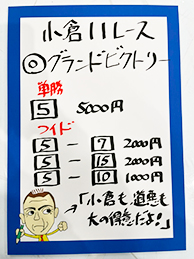 小倉11レース
◎グランドビクトリー
単勝
5 5000円
ワイド
5-7 2000円
5-15 2000円
5-10 1000円
「小倉も道悪も
大の得意だよ!」